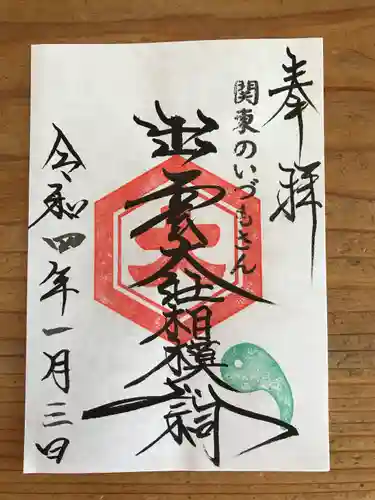 奉拝
関東のいづもさん
出雲大社相模分祠
令和四年一月三日
大